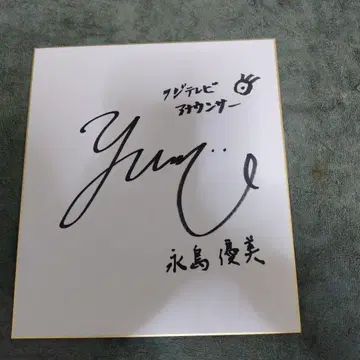 フジテレビ
アナウンサー
yumi
永島 優美